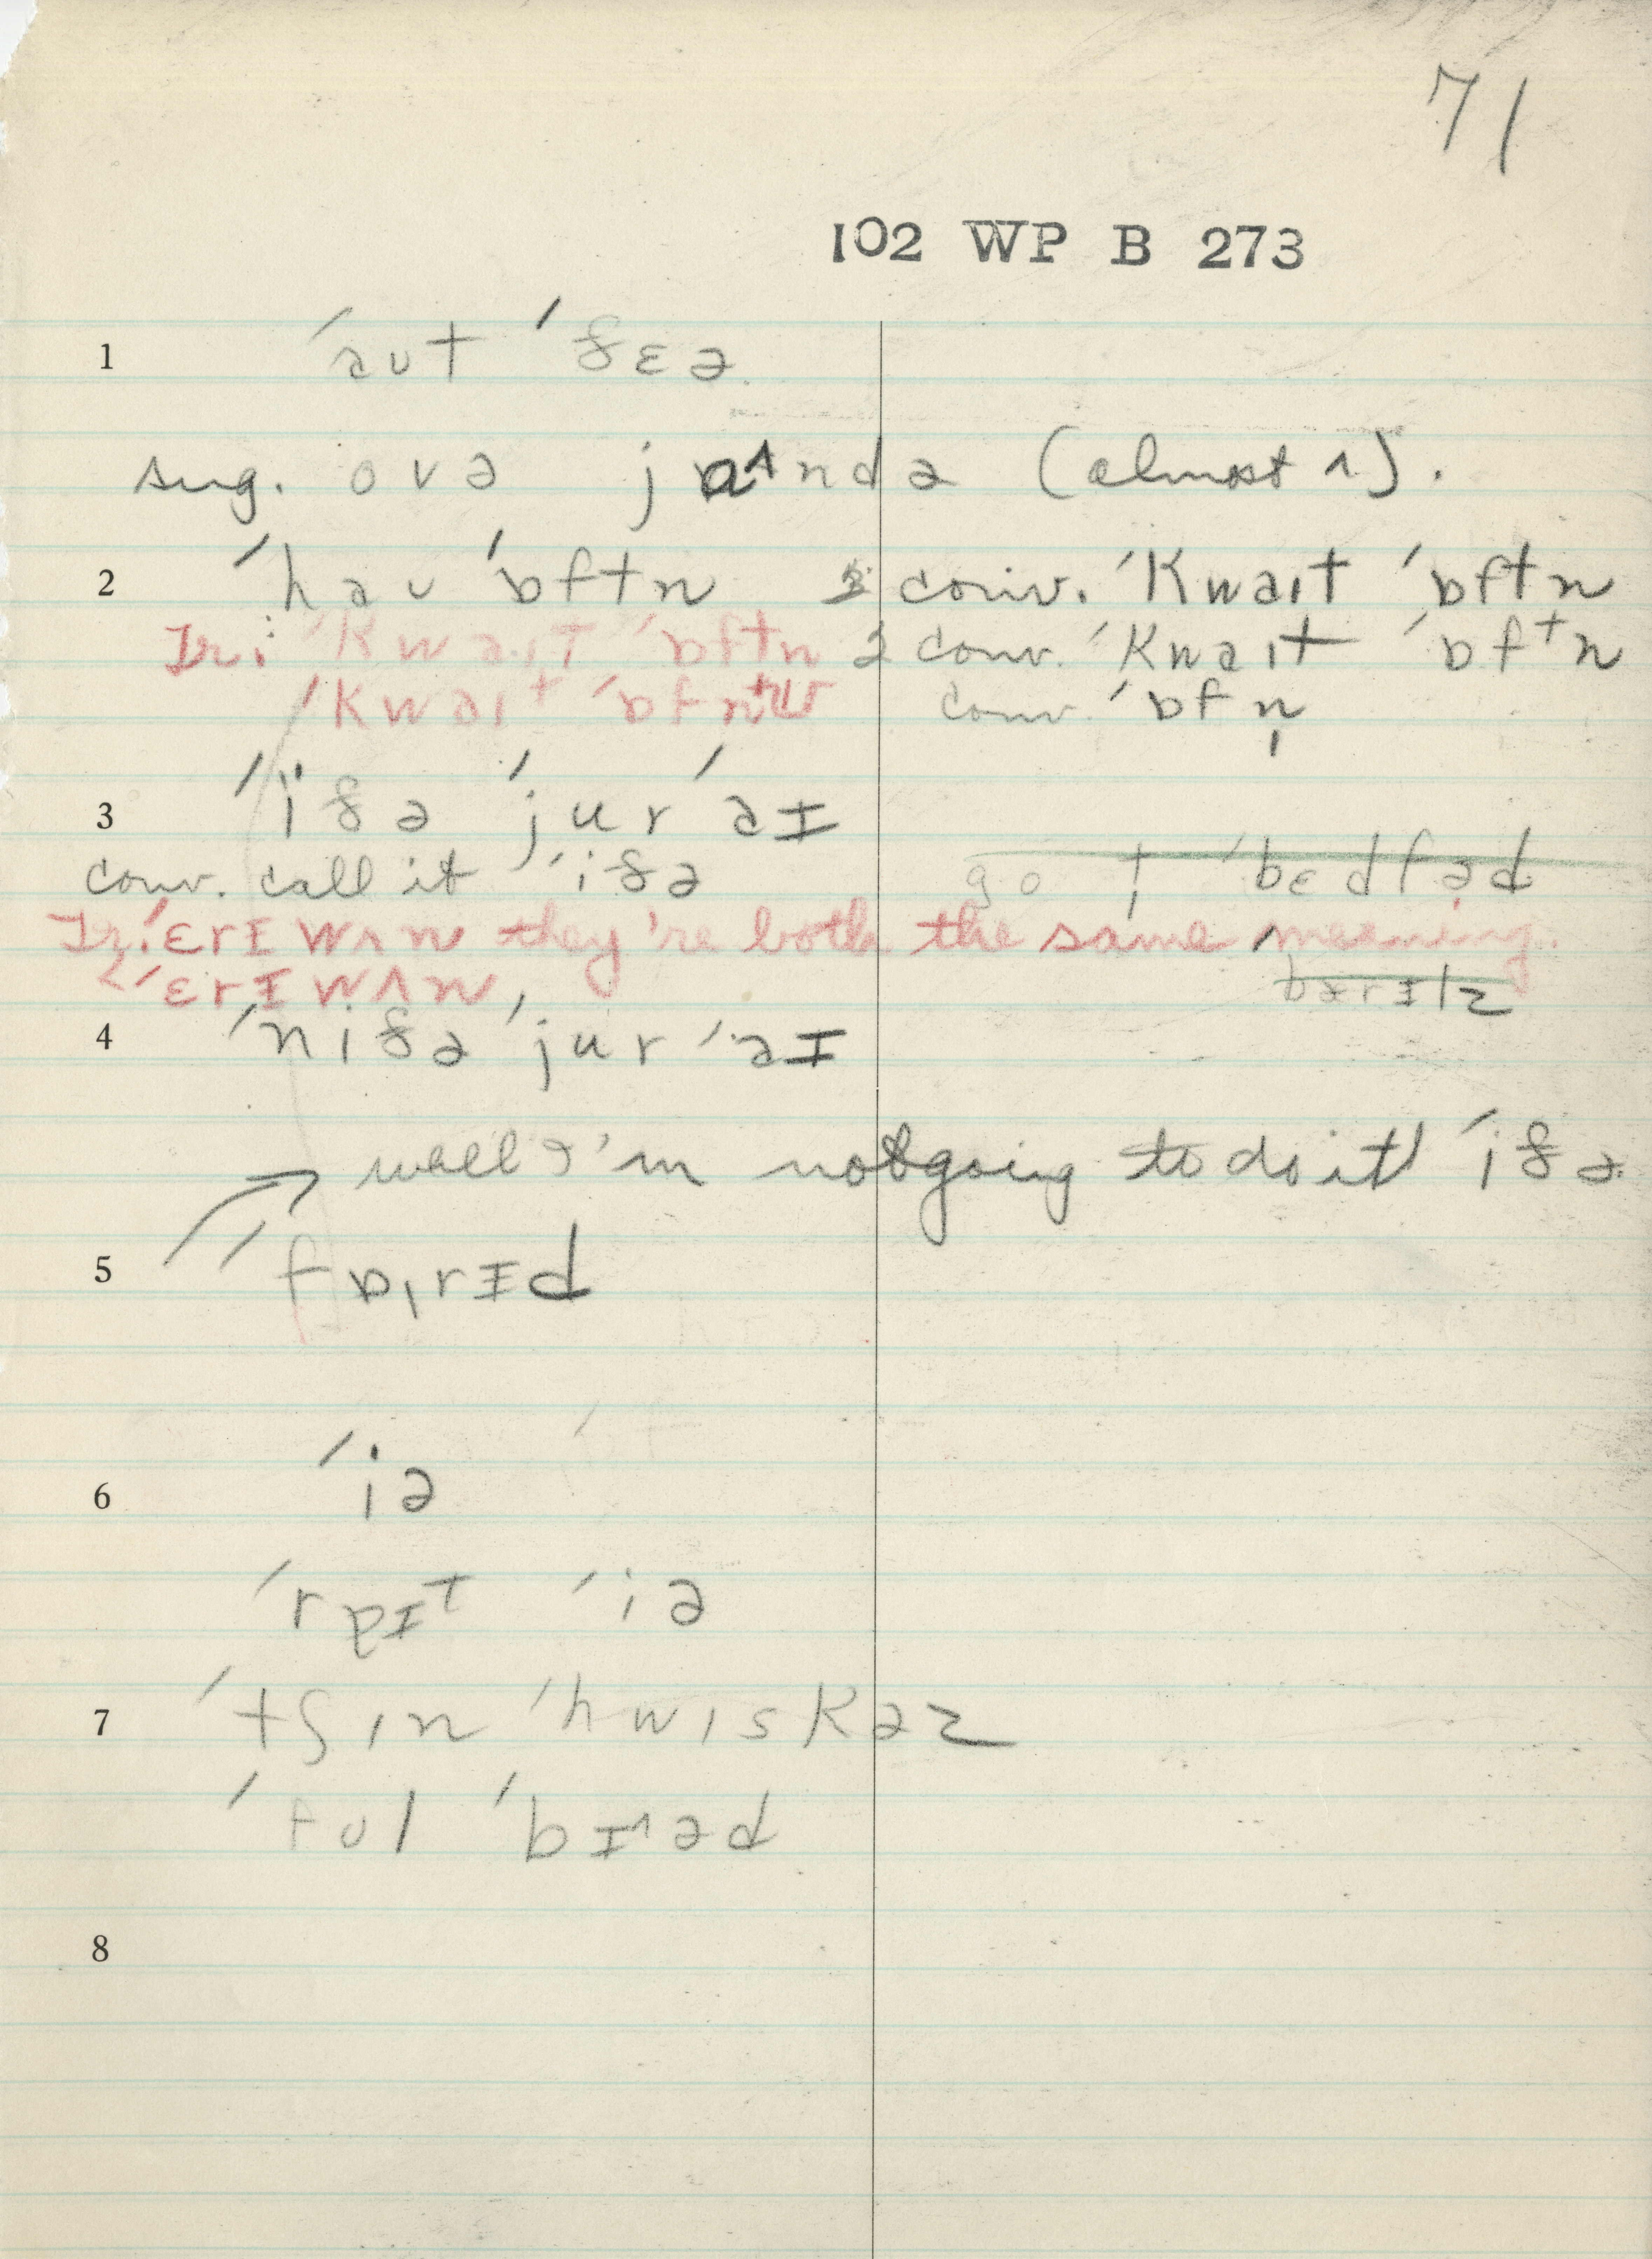 71
102 WP B 273
1 ˈaut ˈðɛə
sug. ovə jɑ^ndə (almost ʌ).
2 ˈhau ˈɒftn 2 conv. ˈkwaɪt ˈɒftn
Ir: ˈkwaɪt ˈɒftn 2 conv. ˈkwaɪt ˈɒftn
ˈkwaɪt ˈɒfn conv. ˈɒfn̩
3 ˈiðə ˈjur ˈaɪ
conv. call it ˈiðə go t ˈbɛdfəd
Ir: ˈɛrɪwʌn they're both the same meaning.
< ˈɛrɪwʌn, bærɪlz
4 ˈniðə ˈjur ˈaɪ
well I'm not going to do it ˈiðə
5 ˈfɒrɪd
6 ˈiə
ˈrpɪt ˈiə
7 ˈtʃin ˈhwiskəz
ˈful ˈbɪ^əd
8